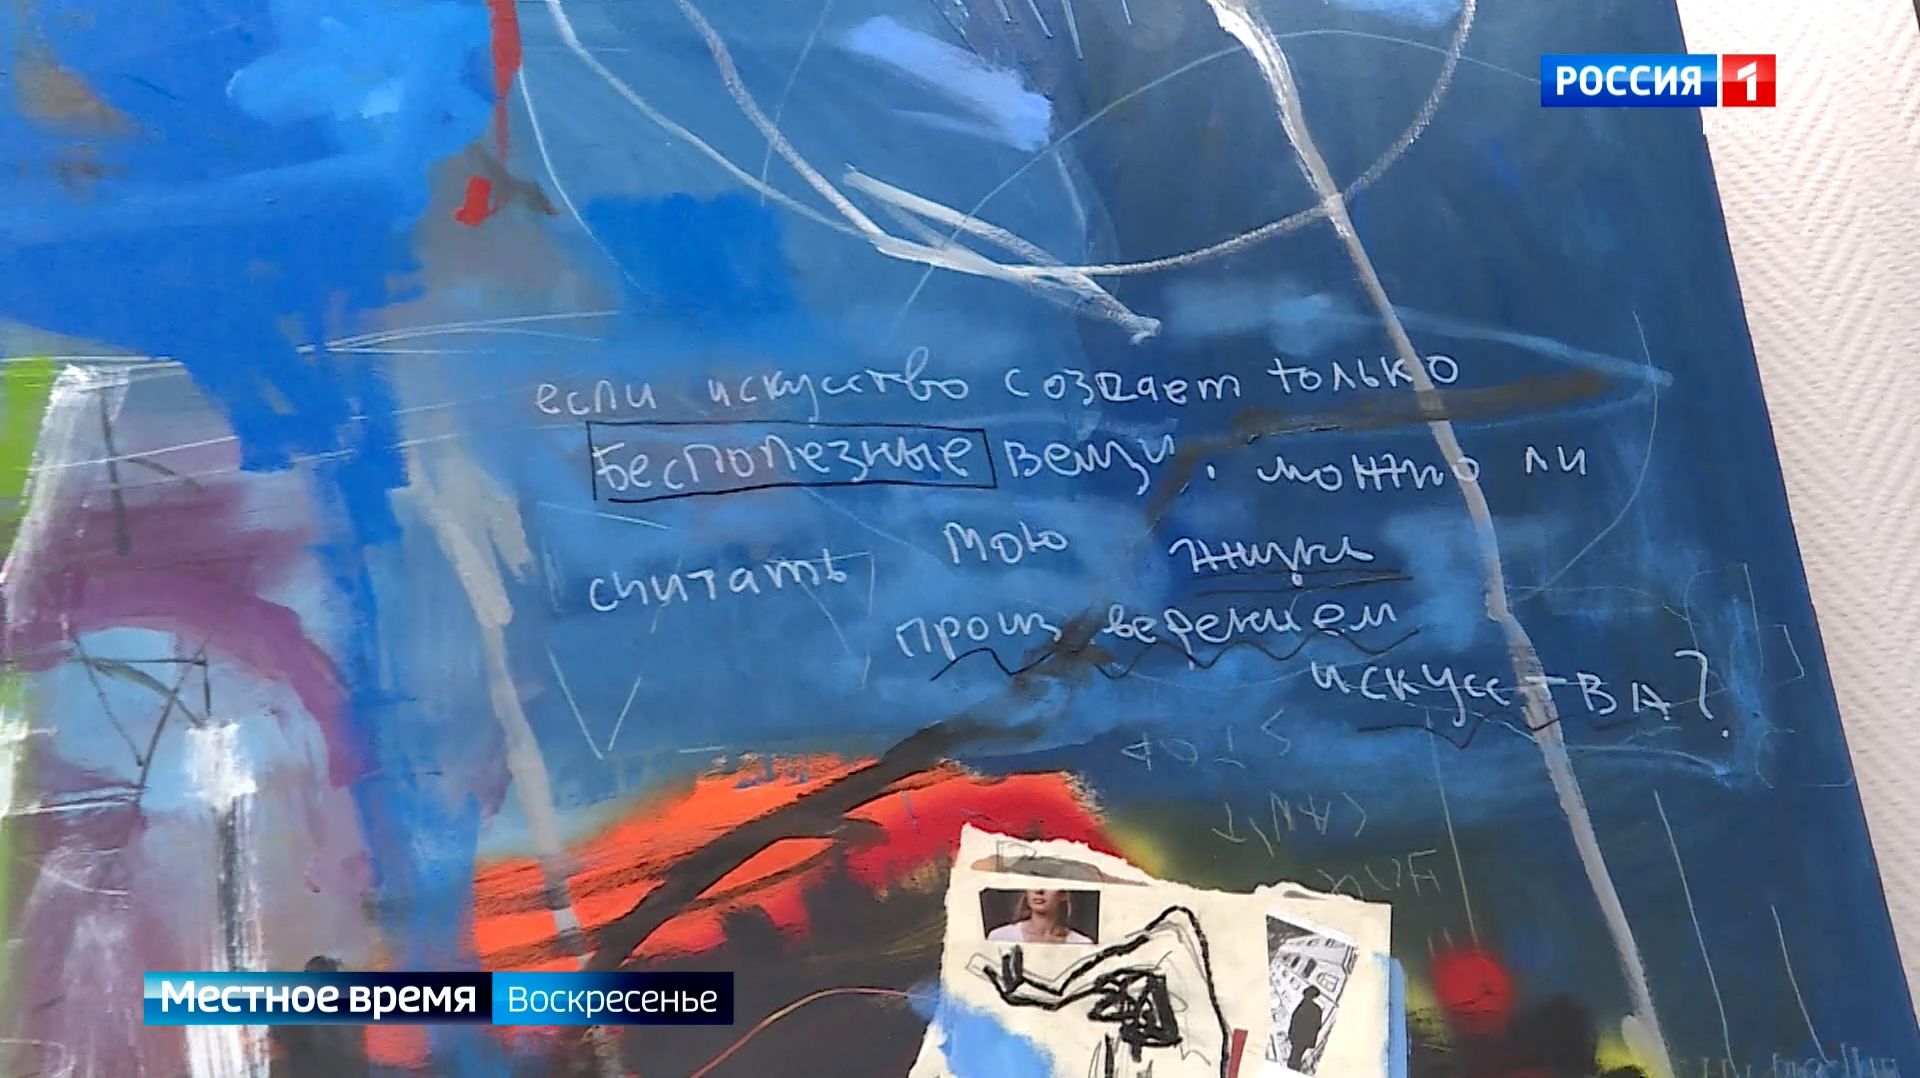 РОССИЯ 1
если искусство создает только
бесполезные вещи, можно ли
считать мою жизнь
произведением
искусства?
Местное время Воскресенье